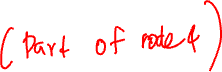 (Part of node 4)